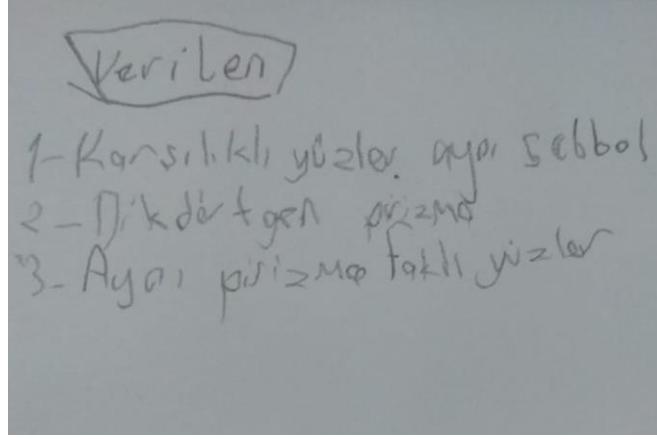 Verilen
1-Karşılıklı yüzler. aynı sebbol
2-Dikdörtgen prizma
3-Aynı pirizma faklı yüzler